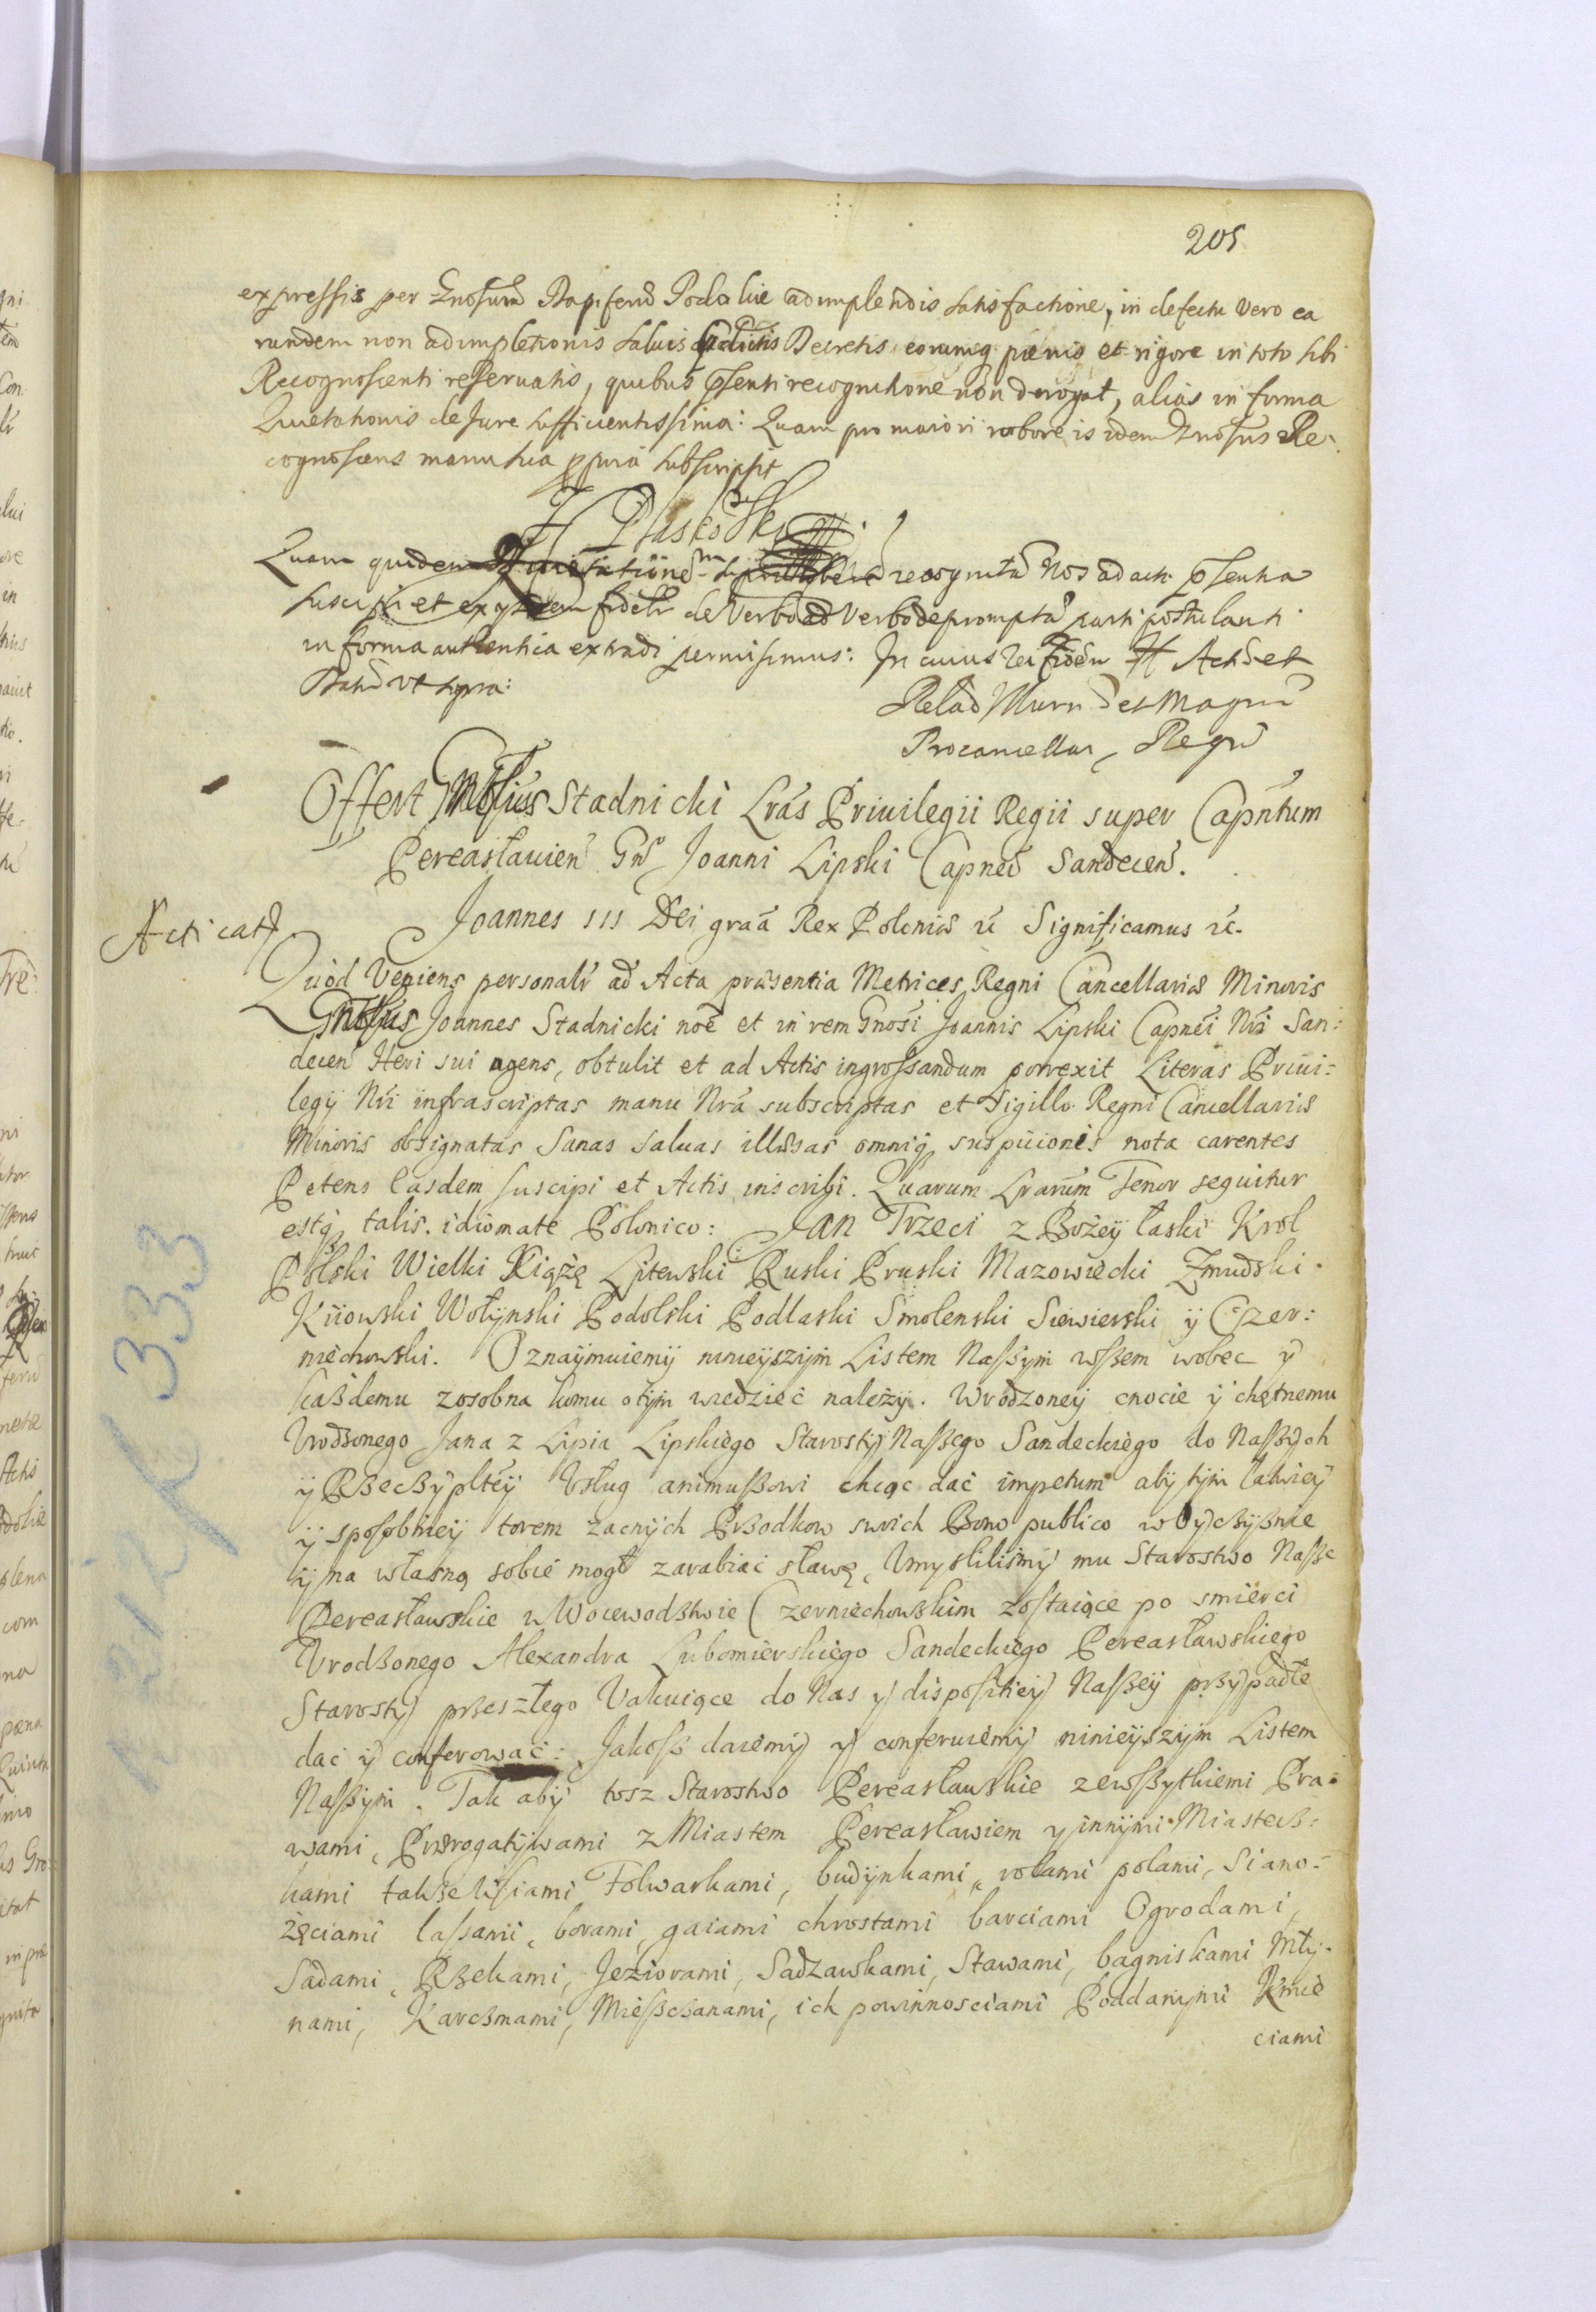 205
expressis per Gnosum Dapiferu Podoliæ adimplendis satisfactione, in defectu vero ea
rundem non adimpletionis saluis Decretis eorumq pænis et rigore in toto sibi
Recognoscenti reseruatis, quibus pſenti recognitione non derogat, alias in forma
Quietationis de Jure sufficientissima: Quam pro maiori robore is idem Gnosus Re-
cognoscens manu sua ppria subscripsit
Quam quidem recognita Nos ad acta pſentia
suscipi et ex ijsdem fidelr de Verbo ad Verbo deprompta parti postulanti
in forma authentica extradi permisimus: In cuius rei fidem Act et
Dat Vt supra:
Relao et Magni
Procancellar Regni
Offert Gnosus Stadnicki Lras Priuilegii Regii super Capntum
Pereasłauien Gnſo Joanni Lipski Capneo Sandecen.
Acticat
Joannes III Dei graa Rex Poloniæ rc Significamus rc.
Quod Veniens personalr ad Acta præsentia Metrices Regni Cancellariæ Minoris
Gnosus Joannes Stadnicki noe et in rem Gnosi Joannis Lipski Capnei Nri San:
decen Heri sui agens, obtulit et ad Actis ingrossandum porrexit Literas Priui:
legij Nri infrascriptas manu Nra subscriptas et Sigillo Regni Cancellariæ
Minoris obsignatas Sanas saluas illæsas omniq suspicionis nota carentes
Petens easdem suscipi et Actis inscribi. Quarum Lrarum Tenor sequitur
estq talis. idiomate Polonico: Jan Trzeci z Bożey łaski Krol
Polski Wielki Xiążę Litewski Ruski Pruski Mazowiecki Zmudski.
Kiiowski Wołynski Podolski Podlaski Smolenski Siewierski ÿ Czer:
niechowski. Oznaÿmuiemÿ ninieÿszÿm Listem Naſßÿm wſßem wobec ÿ
kaßdemu zosobna komu otÿm wiedziec należÿ. Wrodzoneÿ cnocie ÿ chętnemu
Vrodzonego Jana z Lipia Lipskiego Starostÿ Naßego Sandeckiego do Naßÿch
ÿ Rßecßÿpltey Vsług animußowi chcąc dać impetum abÿ tÿm łatwieÿ
ÿ sposobnieÿ torem zacnÿch Prßodkow swich Bono publico w Oycßÿznie
ÿ na własną sobie mogł zarabiać sławę, Vmyslilismÿ mu Starostwo Naſße
Pereasławskie w Woiewodztwie Czerniechowskim zostaiące po smierci
Vrodzonego Alexandra Lubomierskiego Sandeckiego Pereasławskiego
Starostÿ przeszłego Vakuiące do Nas ÿ dispositieÿ Naſßeÿ przÿpadłe
dać ÿ conferować: Jakoß daiemÿ ÿ conferuiemÿ ninieÿszÿm Listem
Naſßÿm. Tak abÿ tosz Starostwo Pereasławskie zewſßÿtkiemi Pra:
wami, Prærogatÿwami z Miastem Pereasławiem ÿ innÿmi Miastecß:
kami takße Folwarkami, budÿnkami, rolami polami, Siano:
żęciami laſsami, borami, gaiami chrostami barciami Ogrodami,
Sadami, Rßekami, Jeziorami, Sadzawkami, Stawami, bagniskami Młÿ-
nami, Karcßmami, Mießcßanami, ich powinnosciami Poddanÿmi Kmie
ciami